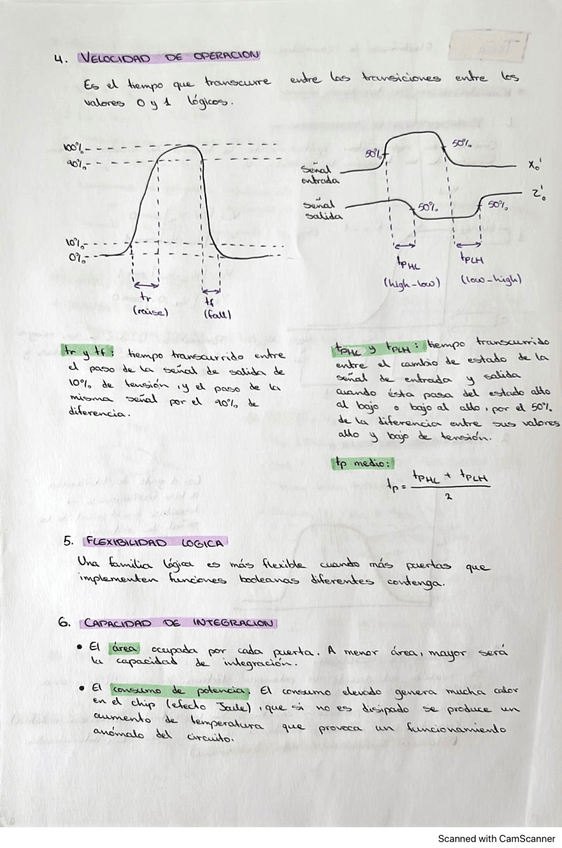 4. VELOCIDAD DE OPERACION
Es el tiempo que transcurre entre las transiciones entre los
valores 0 y 1 lógicos.
100%
90%
10%
0%
tr
(raise)
tf
(fall)
señal
entrada
señal
salida
50%
50%
50%
50%
X₀'
Z₀'
tPHL
(high-low)
tPLH
(low-high)
tr y tf: tiempo transcurrido entre
el paso de la señal de salida de
10% de tensión, y el paso de la
misma señal por el 90% de
diferencia.
tPHL y tPLH: tiempo transcurrido
entre el cambio de estado de la
señal de entrada y salida
cuando ésta pasa del estado alto
al bajo o bajo al alto, por el 50%
de la diferencia entre sus valores
alto y bajo de tensión.
tp medio:
tp = (tPHL + tPLH) / 2
5. FLEXIBILIDAD LOGICA
Una familia lógica es más flexible cuando más puertas que
implementen funciones booleanas diferentes contenga.
6. CAPACIDAD DE INTEGRACION
• El área ocupada por cada puerta. A menor área, mayor será
la capacidad de integración.
• El consumo de potencia. El consumo elevado genera mucha calor
en el chip (efecto Joule), que si no es disipado se produce un
aumento de temperatura que provoca un funcionamiento
anómalo del circuito.
Scanned with CamScanner